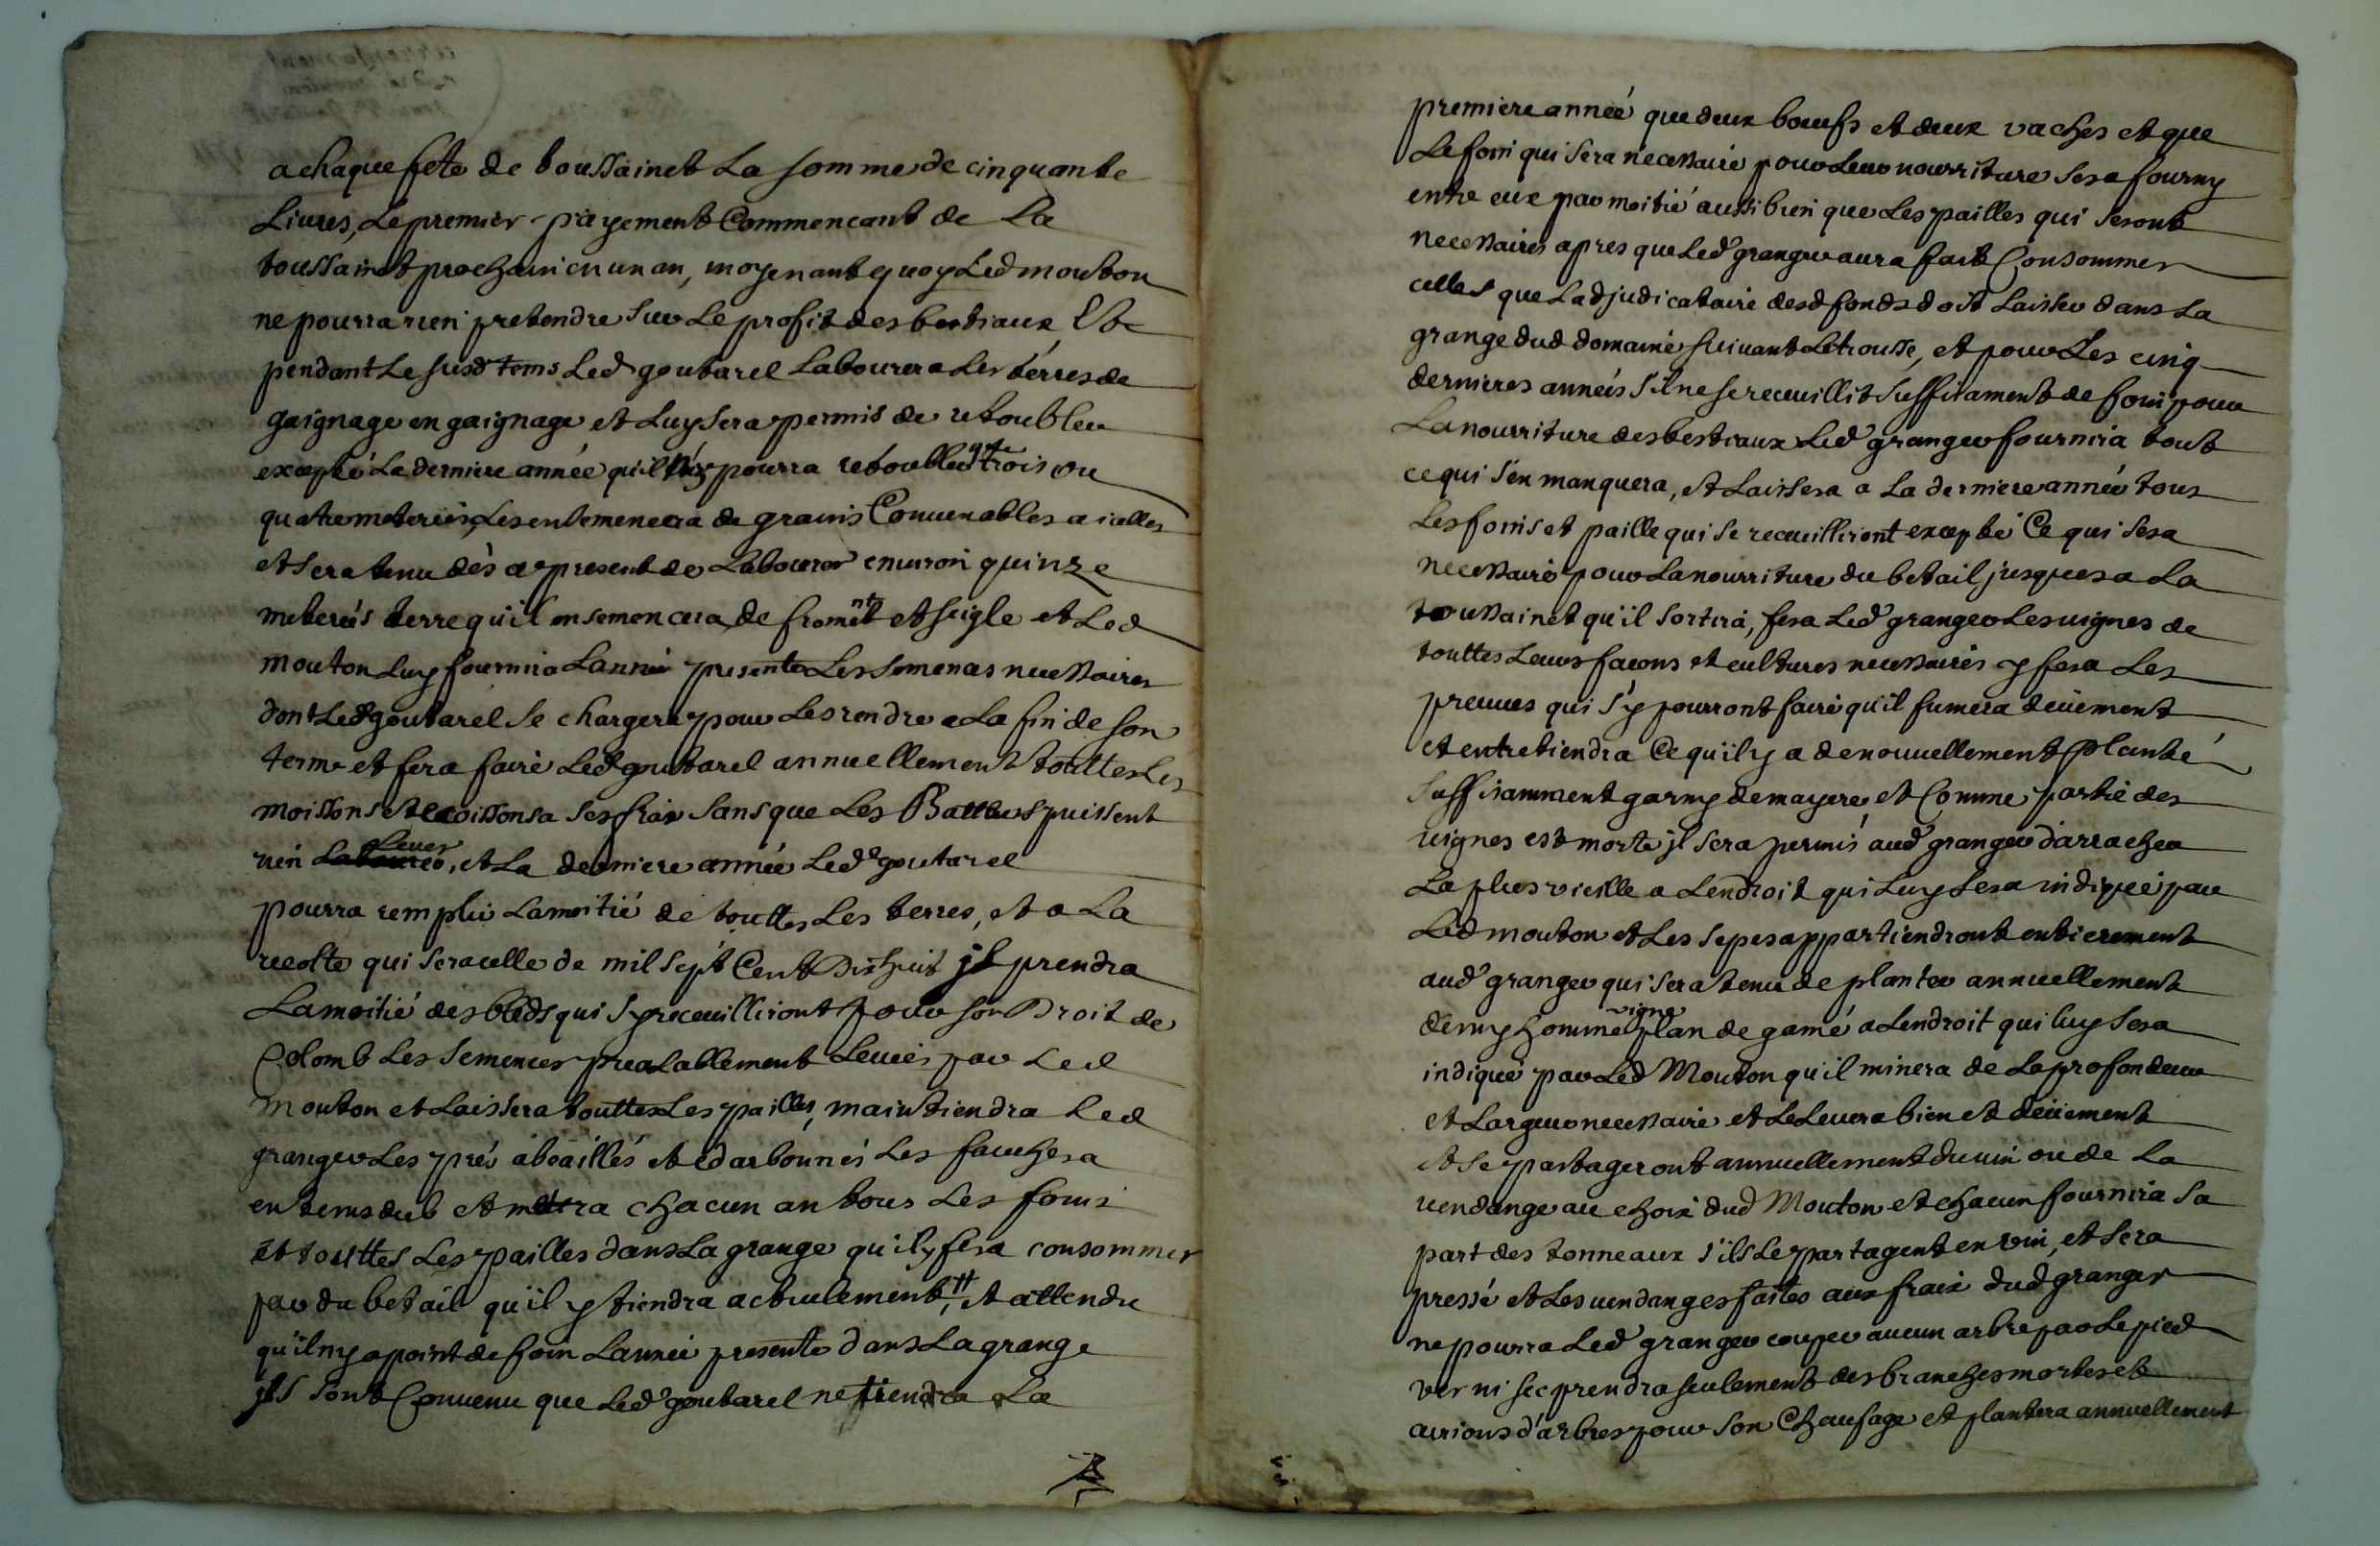 a chaque fete de toussainct La somme de cinquante
Liures, Le premier payement Commencant de La
toussainct prochain en un an, moyenant quoy Led mouton
ne pourra rien pretendre sur Le profit des bestiaux Et
pendant Le susd tems Led goutarel Labourera Les terres de
gaignage en gaignage et Luy sera permis de retoubler
excepté La derniere année qu'il n'y pourra retoubler que trois ou
quatre meterées, Les ensemencera de grains Conuenables a icelles
et sera tenu dès a present de Labourer enuiron quinze
meterées terre qu'il ensemencera de froment et seigle et Led
mouton Luy fournira L'année presente Les semences necessaires
dont Led goutarel se chargera pour Les rendre a La fin de son
terme et fera faire Led goutarel annuellement touttes Les
moissons et ecoissons a ses frais sans que Les Batteurs puissent
rien Leuer, et La derniere année Led goutarel
pourra remplir La moitié de touttes Les terres, et a La
recolte qui sera celle de mil sept Cent Dixhuit jl prendra
La moitié des bleds qui s'y receuilliront pour son Droit de
Colomb Les semences prealablement Leueés par Led
mouton et Laissera touttes Les pailles, maintiendra Led
granger Les prés abeaillés et edarbounés Les fauchera
en tems dub et mettra chacun an tous Les foins
et touttes Les pailles dans La grange qu'il y fera consommer
par du betail qu'il y tiendra actuelement, # et attendu
qu'il ny a point de foin L'année presente dans La grange
jls sont Conuenu que Led goutarel ne tiendra La
premiere année que deux boeufs et deux vaches et que
Le foin qui sera necessaire pour Leur nourriture sera fourny
entre eux par moitié aussi bien que Les pailles qui seront
necessaires apres que Led granger aura fait Consommer
celles que L'adjudicataire desd fonds doit Laisser dans La
grange dud domaine suiuant Letrousse, et pour Les cinq
dernieres années s'il ne se receuillit suffisament de foin pour
La nourriture des bestiaux Led granger fournira tout
ce qui s'en manquera, et Laissera a La derniere année tous
Les foins et paille qui se recueilliront excepté Ce qui sera
necessaire pour La nourriture du betail jusques a La
toussainct qu'il sortira, fera Led granger Les uignes de
touttes Leurs facons et cultures necessaires y fera Les
preuues qui s'y pourront faire qu'il fumera deüement
et entretiendra Ce qu'il y a de nouuellement planté
suffisamment garny de mayere, et Comme partie des
uignes est morte jl sera permis aud granger d'arracher
La plus vieille a L'endroit qui Luy sera indiqueé par
Led mouton et Les sepes appartiendront entierement
aud granger qui sera tenu de planter annuellement
demy homme vigne plan de gamé a L'endroit qui luy sera
indiqué par Led Mouton qu'il minera de La profondeur
et Largeur necessaire et Le Leuera bien et deüement
et se partageront annuellement du uin ou de La
uendange au choix dud Mouton et chacun fournira sa
part des tonneaux s'ils Le partagent en vin, et sera
pressé et Les uendanges faites aux fraix dud granger
ne pourra Led granger couper aucun arbre par Le pied
ver ni sec prendra seulement des branches mortes et
aurions d'arbres pour son Chaufage et plantera annuellement